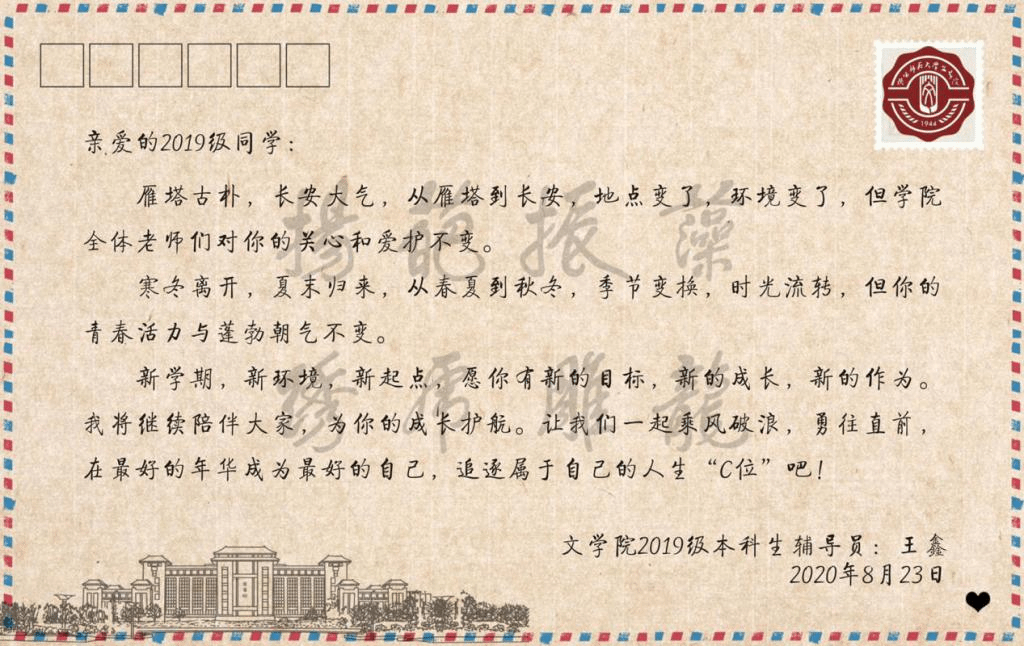 陕西师范大学文学院
1944
亲爱的2019级同学：
雁塔古朴，长安大气，从雁塔到长安，地点变了，环境变了，但学院
全体老师们对你的关心和爱护不变。
寒冬离开，夏末归来，从春夏到秋冬，季节变换，时光流转，但你的
青春活力与蓬勃朝气不变。
新学期，新环境，新起点，愿你有新的目标，新的成长，新的作为。
我将继续陪伴大家，为你的成长护航。让我们一起乘风破浪，勇往直前，
在最好的年华成为最好的自己，追逐属于自己的人生“C位”吧！
揚葩振藻
绣虎雕龍
文学院2019级本科生辅导员：王鑫
2020年8月23日